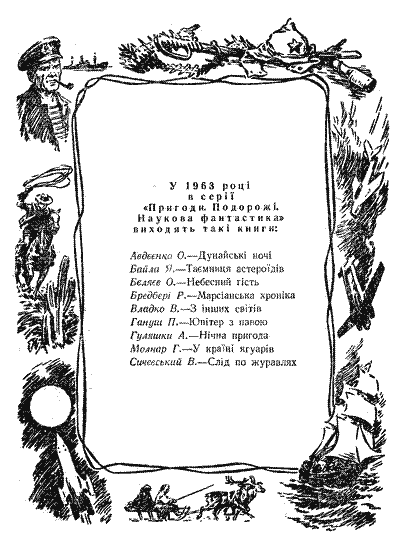 У 1963 році
в серії
«Пригоди. Подорожі.
Наукова фантастика»
виходять такі книги:
Авдєєнко О.—Дунайські ночі
Байла Я.—Таємниця астероїдів
Бєляєв О.—Небесний гість
Бредбері Р.—Марсіанська хроніка
Владко В.—З інших світів
Гануш П.—Юпітер з павою
Гуляшки А.—Нічна пригода
Молнар Г.—У країні ягуарів
Сичевський В.—Слід по журавлях